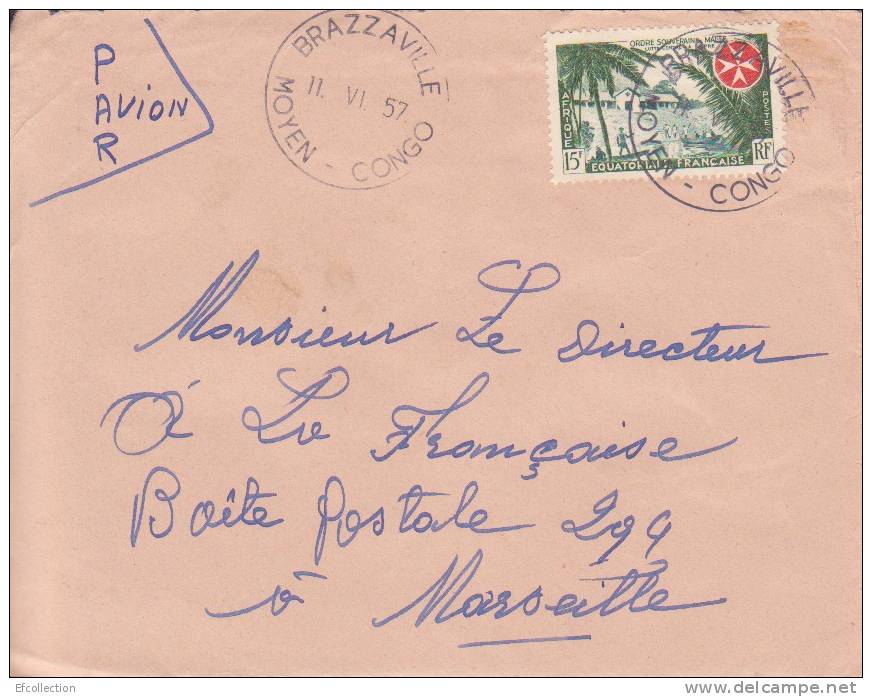 PAR
AVION
BRAZZAVILLE
11. VI. 57
MOYEN - CONGO
ORDRE SOUVERAIN MALTE
AFRIQUE
POSTES
15F
ÉQUATORIALE FRANÇAISE
RF
BRAZZAVILLE
MOYEN - CONGO
Monsieur Le Directeur
á La Française
Boîte Postale 299
à Marseille
Efcollection
www.delcampe.net